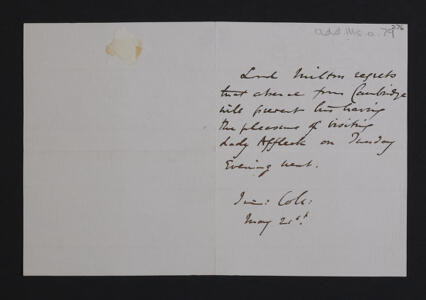 Add.Ms.a.79 276
Lord Milton regrets
that absence from Cambridge
will prevent his having
the pleasure of visiting
Lady Affleck on Tuesday
Evening next.
Trin: Coll:
May 21st.